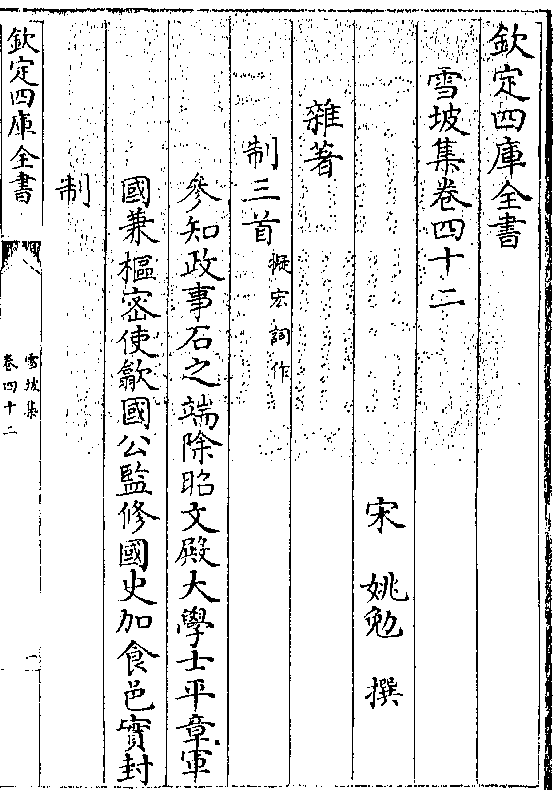 欽定四庫全書
雪坡集卷四十二
宋 姚勉 撰
雜著
制三首擬宏詞作
參知政事石之端除昭文殿大學士平章軍
國兼樞密使歙國公監修國史加食邑實封
制
欽定四庫全書
雪坡集
卷四十二
一